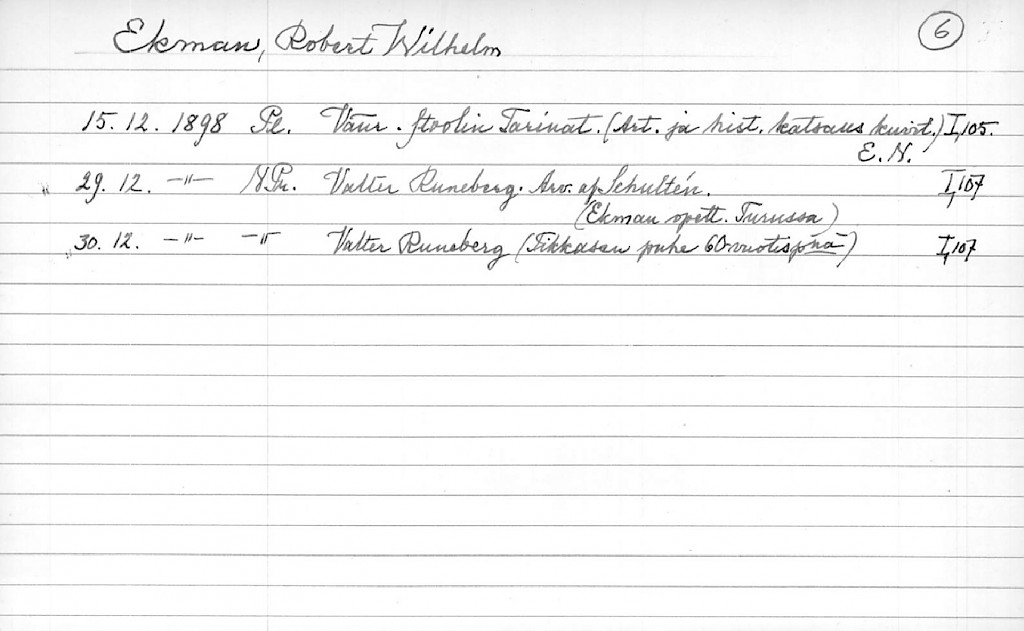 Ekman, Robert Wilhelm 6
15. 12. 1898 Pl. Vänr. Stoolin Tarinat. (Art. ja hist. katsaus kuvit.) I,105.
E. N.
" 29. 12. —"— N.Pr. Valter Runeberg. Arv. af Schultén. I,107
(Ekman opett. Turussa)
" 30. 12. —"— —"— Valter Runeberg (Tikkasen puhe 60vuotispnä) I,107